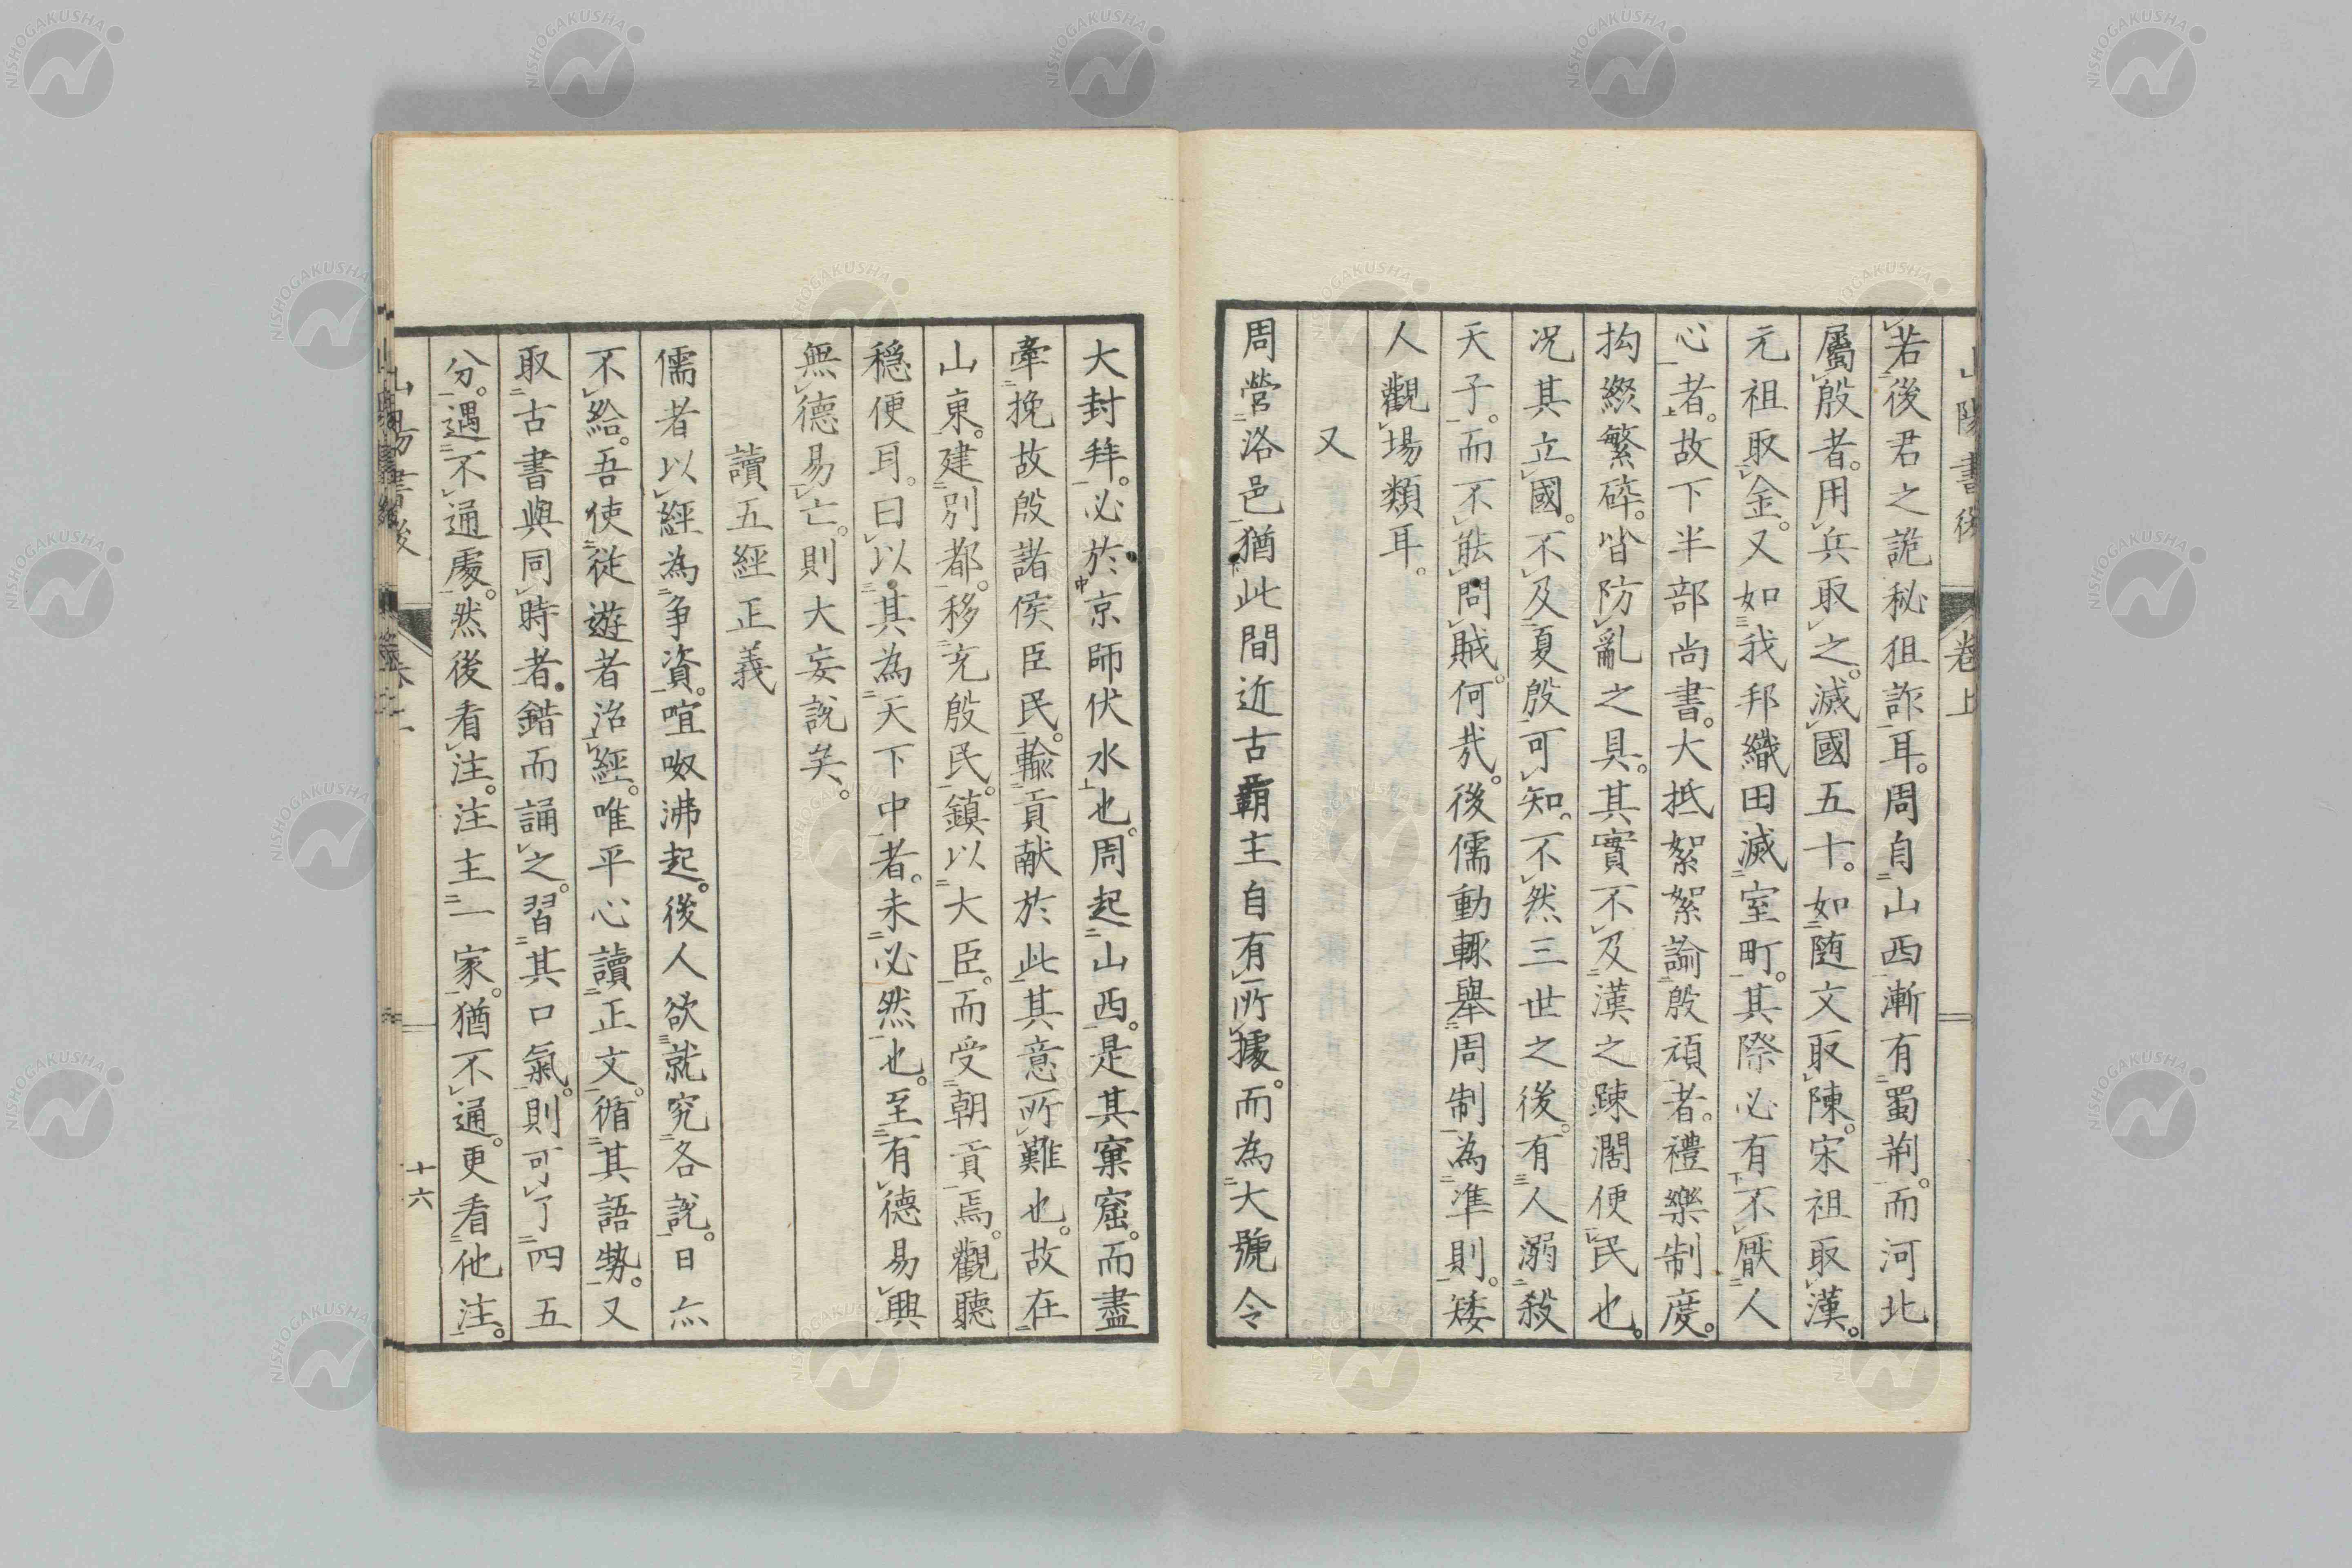 山陽書後 卷上
若後君之詭秘狙詐耳。周自山西漸有蜀荊。而河北
屬殷者。用兵取之。滅國五十。如隨文取陳。宋祖取漢。
元祖取金。又如我邦織田滅室町。其際必有不厭人
心者。故下半部尚書。大抵絮絮諭殷頑者。禮樂制度。
抅綴繁碎。皆防亂之具。其實不及漢之踈濶便民也。
况其立國。不及夏殷可知。不然三世之後。有人溺殺
天子。而不能問賊。何哉。後儒動輒舉周制為準則。矮
人觀場類耳。
又
周營洛邑猶此間近古覇主自有所據。而為大號令
大封拜。必於京師伏水也。周起山西。是其窠窟。而盡
牽挽故殷諸侯臣民。輸貢献於此其意所難也。故在
山東。建別都。移充殷民。鎮以大臣。而受朝貢焉。觀聽
穩便耳。曰以其為天下中者。未必然也。至有德易興
無德易亡。則大妄說矣。
讀五經正義
儒者以經為爭資。喧呶沸起。後人欲就究各說。日亦
不給。吾使從遊者治經。唯平心讀正文。循其語勢。又
取古書與同時者。錯而誦之。習其口氣。則可了四五
分。遇不通處。然後看注。注主一家。猶不通。更看他注。
山陽書後
十六
NISHOGAKUSHA